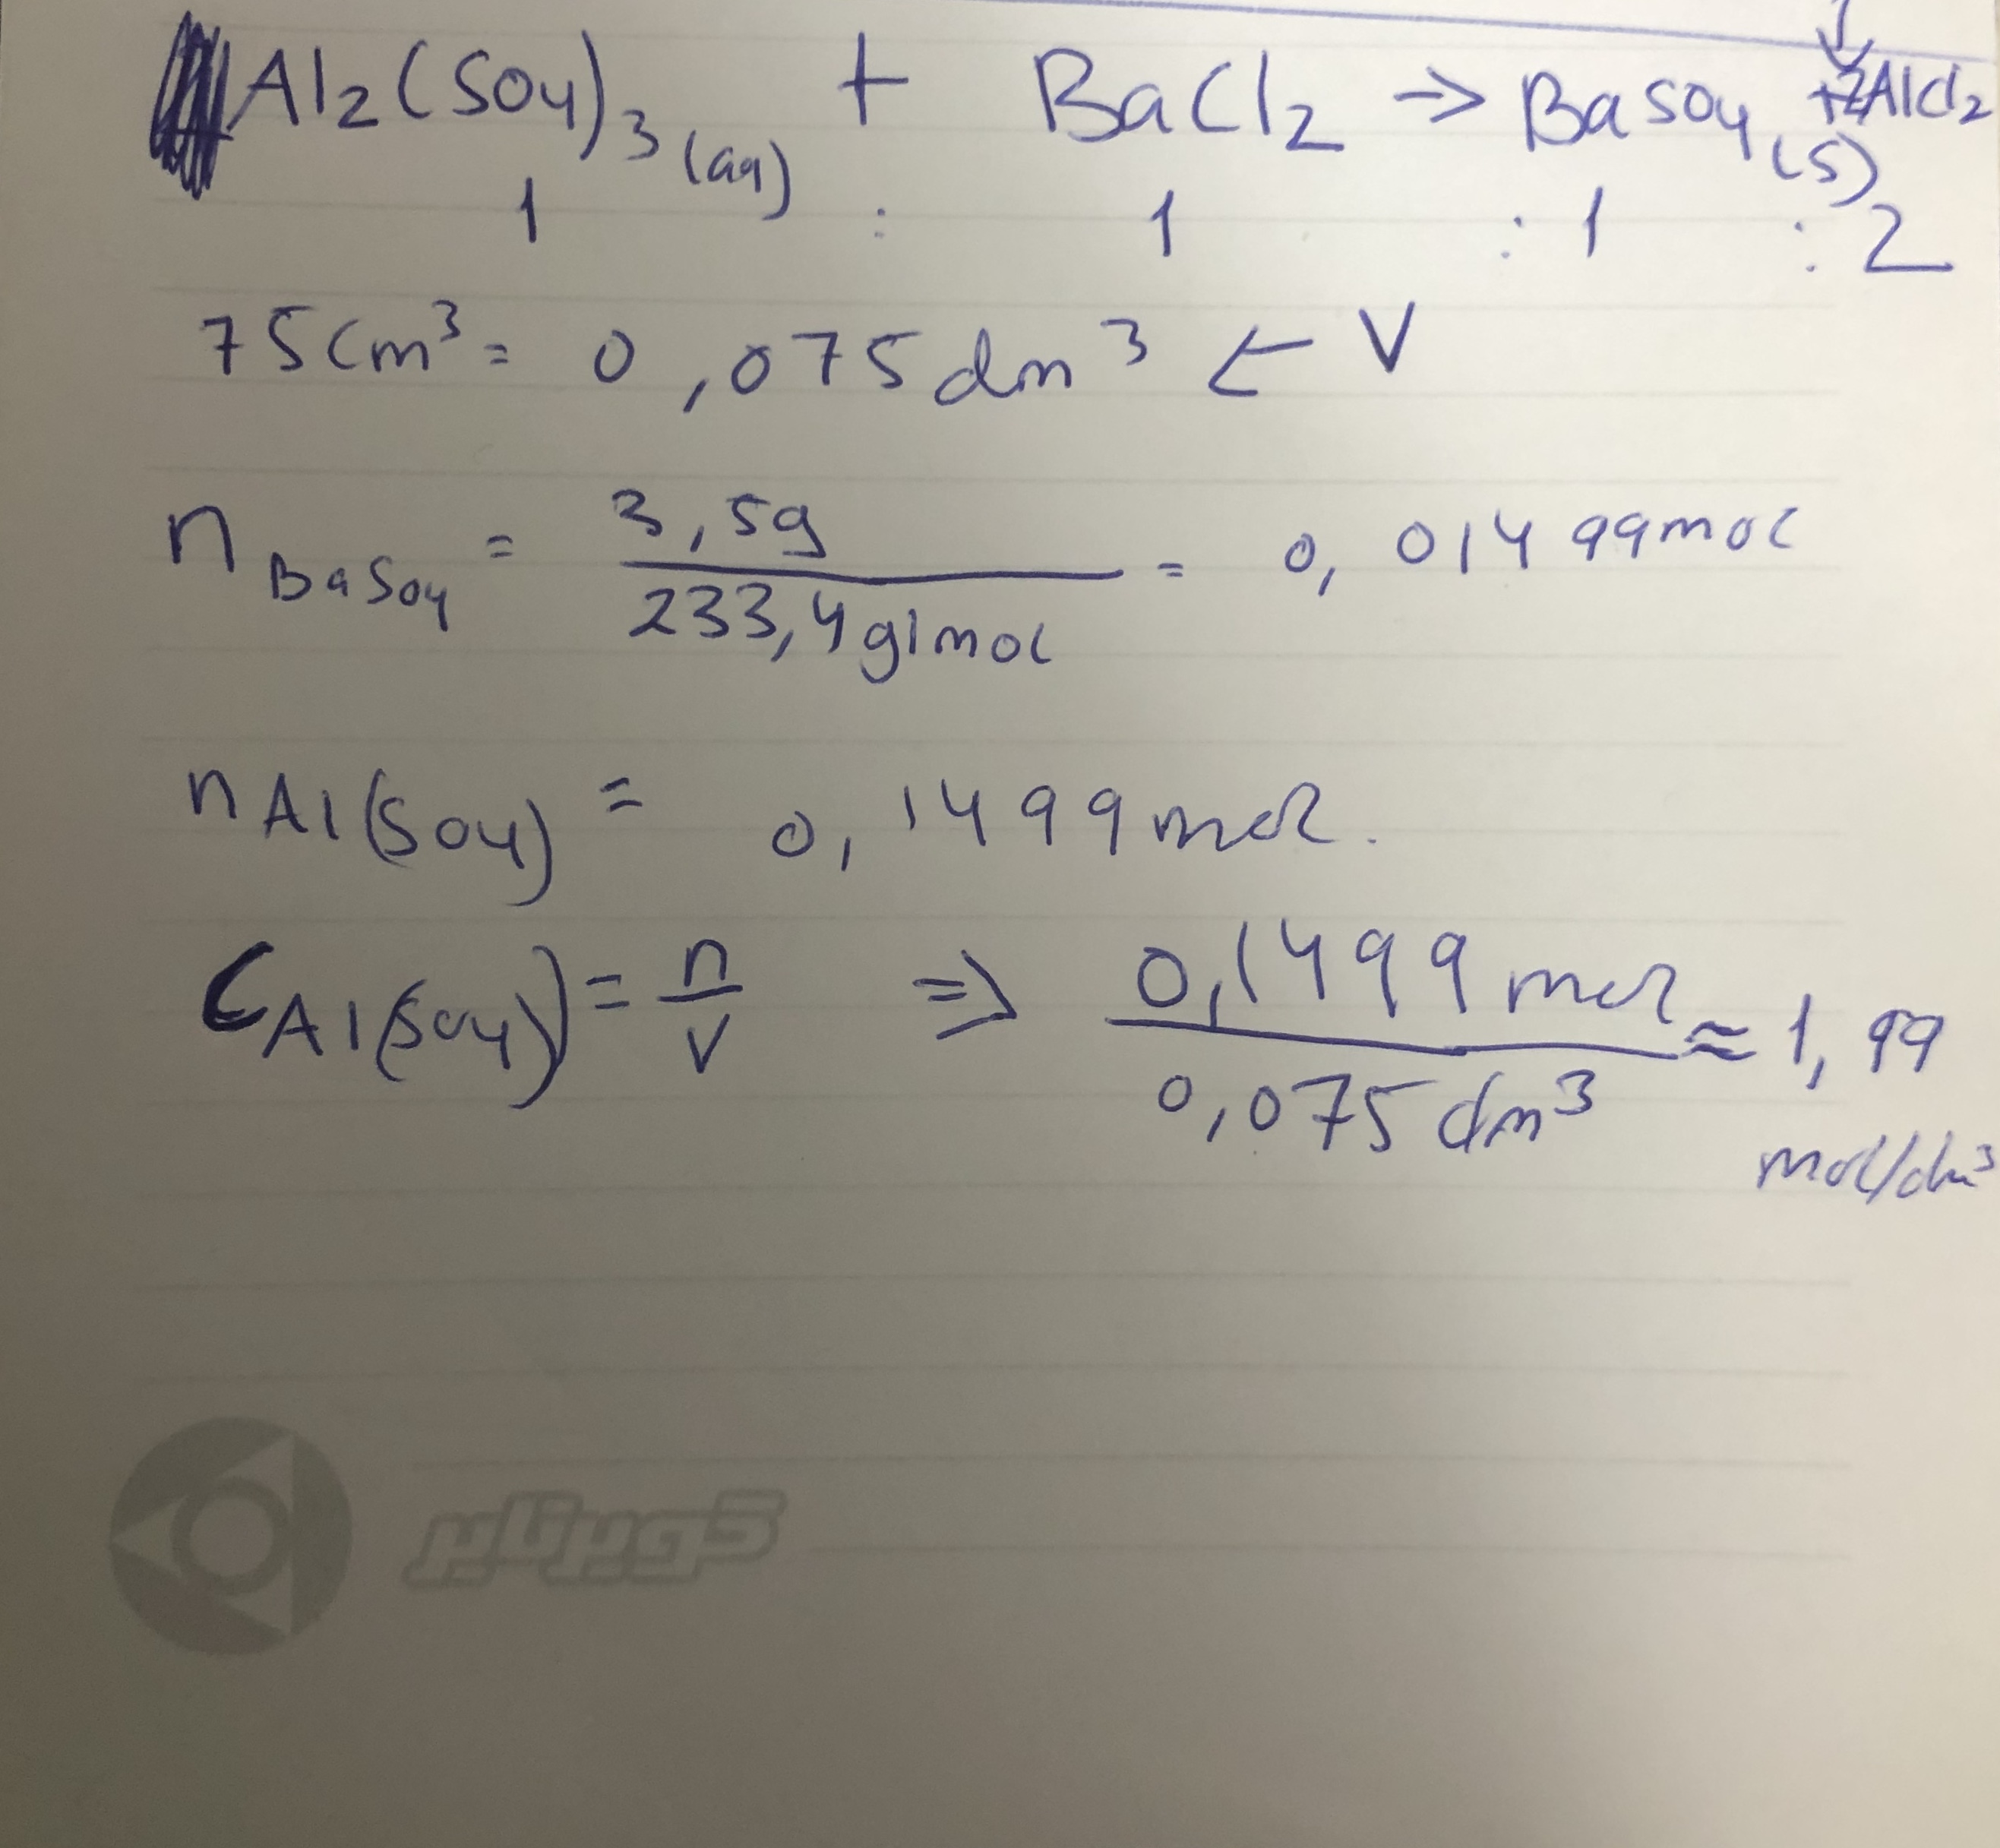 Al₂(SO₄)₃(aq) + BaCl₂ → BaSO₄(s) +2AlCl₂
1 : 1 : 1 : 2
75cm³ = 0,075dm³ ← V
n BaSO₄ = 3,5g / 233,4g/mol = 0,01499mol
n Al(SO₄) = 0,1499mol.
C Al(SO₄) = n / V ⇒ 0,1499mol / 0,075dm³ ≈ 1,99
mol/dm³
کویرتایر